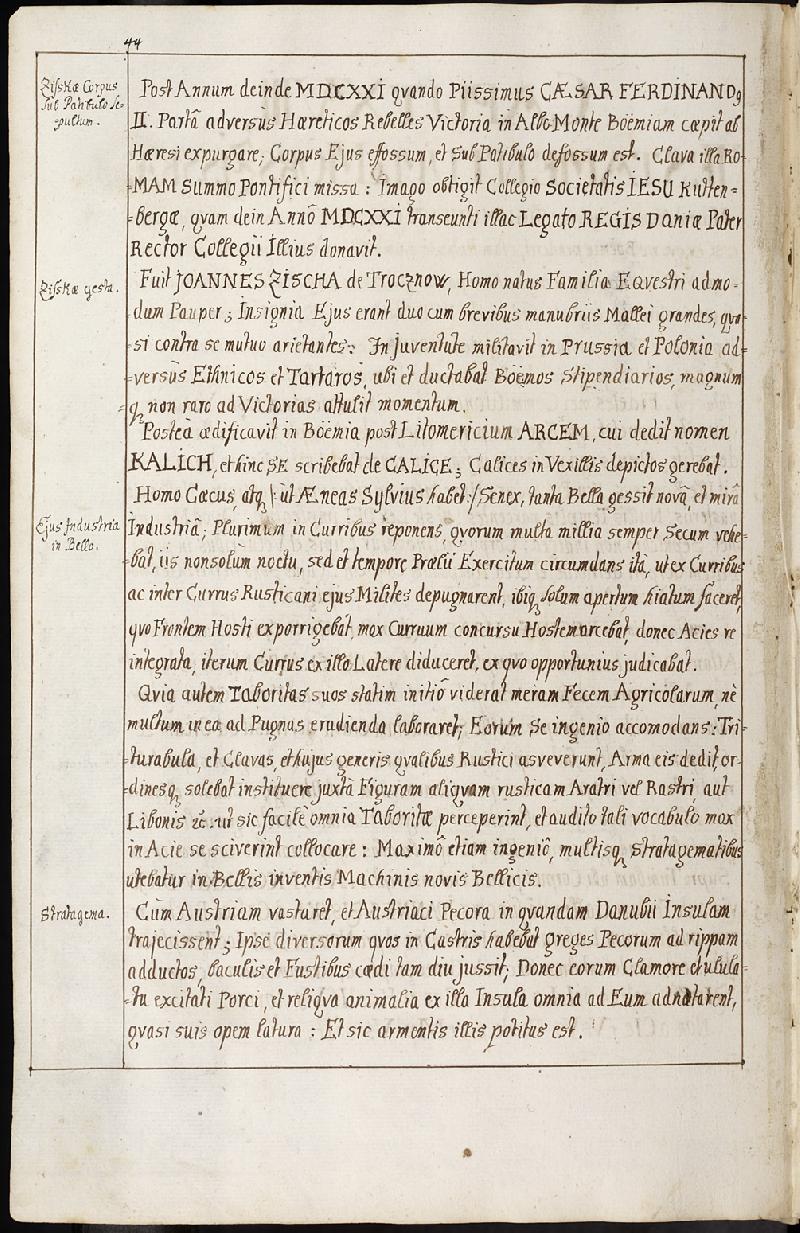 44
Ziskæ Corpus
sub Patibulo se-
pultum.
Post Annum deinde MDCXXI qvando Piissimus CÆSAR FERDINANDg
II. Partâ adversùs Hæreticos Rebelles Victoria in Albo Monte Boëmiam cæpit ab
Hæresi expurgare; Corpus Ejus effossum, et Sub Patibulo defossum est. Clava illa Ro-
-MAM Summo Pontifici missa: Imago obtigit Collegio Societatis IESU Kutten-
-bergæ, qvam dein Annô MDCXXI transeunti illac Legato REGIS Daniæ Pater
Rector Collegii Illius donavit.
Ziskæ gesta.
Fuit JOANNES ZISCHA de Trocznow, Homo natus Familia Eqvestri admo-
dum Pauper; Insignia Ejus erant duo cum brevibus manubriis Mallei grandes, qva-
si contra se mutuo arietantes: In juventute militavit in Prussia et Polonia ad-
-versùs Ethnicos et Tartaros, ubi et ductabat Boëmos Stipendiarios, magnum
-q, non raro ad Victorias attulit momentum.
Posteà ædificavit in Boëmia post Litomericium ARCEM, cui dedit nomen
KALICH, et hinc SE scribebat de CALICE; Calices in Vexillis depictos gerebat.
Homo Cæcus, atq, /: ut Æneas Sylvius habet :/ Senex, tanta Bella gessit novâ, et mirâ
Ejus Industria
in Bello.
Industriâ; Plurimum in Curribus reponens, qvorum multa millia semper Secum vehe-
-bat, iis nonsolùm noctu, sed et tempore Prælii Exercitum circumdans ità, ut ex Curribus
ac inter Currus Rusticani ejus Milites depugnarent, ibiq, solum apertum hiatum faceret,
qvo Frontem Hosti exporrigebat, mox Curruum concursu Hostem arcebat, donec Acies re
integrata, iterum Currus ex illo Latere diduceret, ex qvo opportunius judicabat.
Qvia autem Taboritas suos statim initiô viderat meram Fecem Agricolarum, nè
multum in ea ad Pugnas erudienda laboraret; Eorum Se ingenio accomodans: Tri-
-turabula, et Clavas, et hujus generis qvalibus Rustici asveverunt, Arma eis dedit, or-
-dinesq, solebat instituere juxtà Figuram aliqvam rusticam Aratri vel Rastri, aut
Libonis &c. ut sic facilè omnia Taboritæ perceperint, et audito tali vocabulo mox
in Acie se sciverint collocare: Maximô etiam ingeniô, multisq, Stratagematibus
utebatur in Bellis inventis Machinis novis Bellicis.
Stratagema.
Cùm Austriam vastaret, et Austriaci Pecora in qvandam Danubii Insulam
trajecissent; Ipse diversorum qvos in Castris habebat greges Pecorum ad rippam
adductos, baculis et Fustibus cædi tam diu jussit, Donec eorum Clamore et ulula-
-tu excitati Porci, et reliqva animalia ex illa Insula omnia ad Eum adnatarent,
qvasi suis opem latura: Et sic armentis illis potitus est.